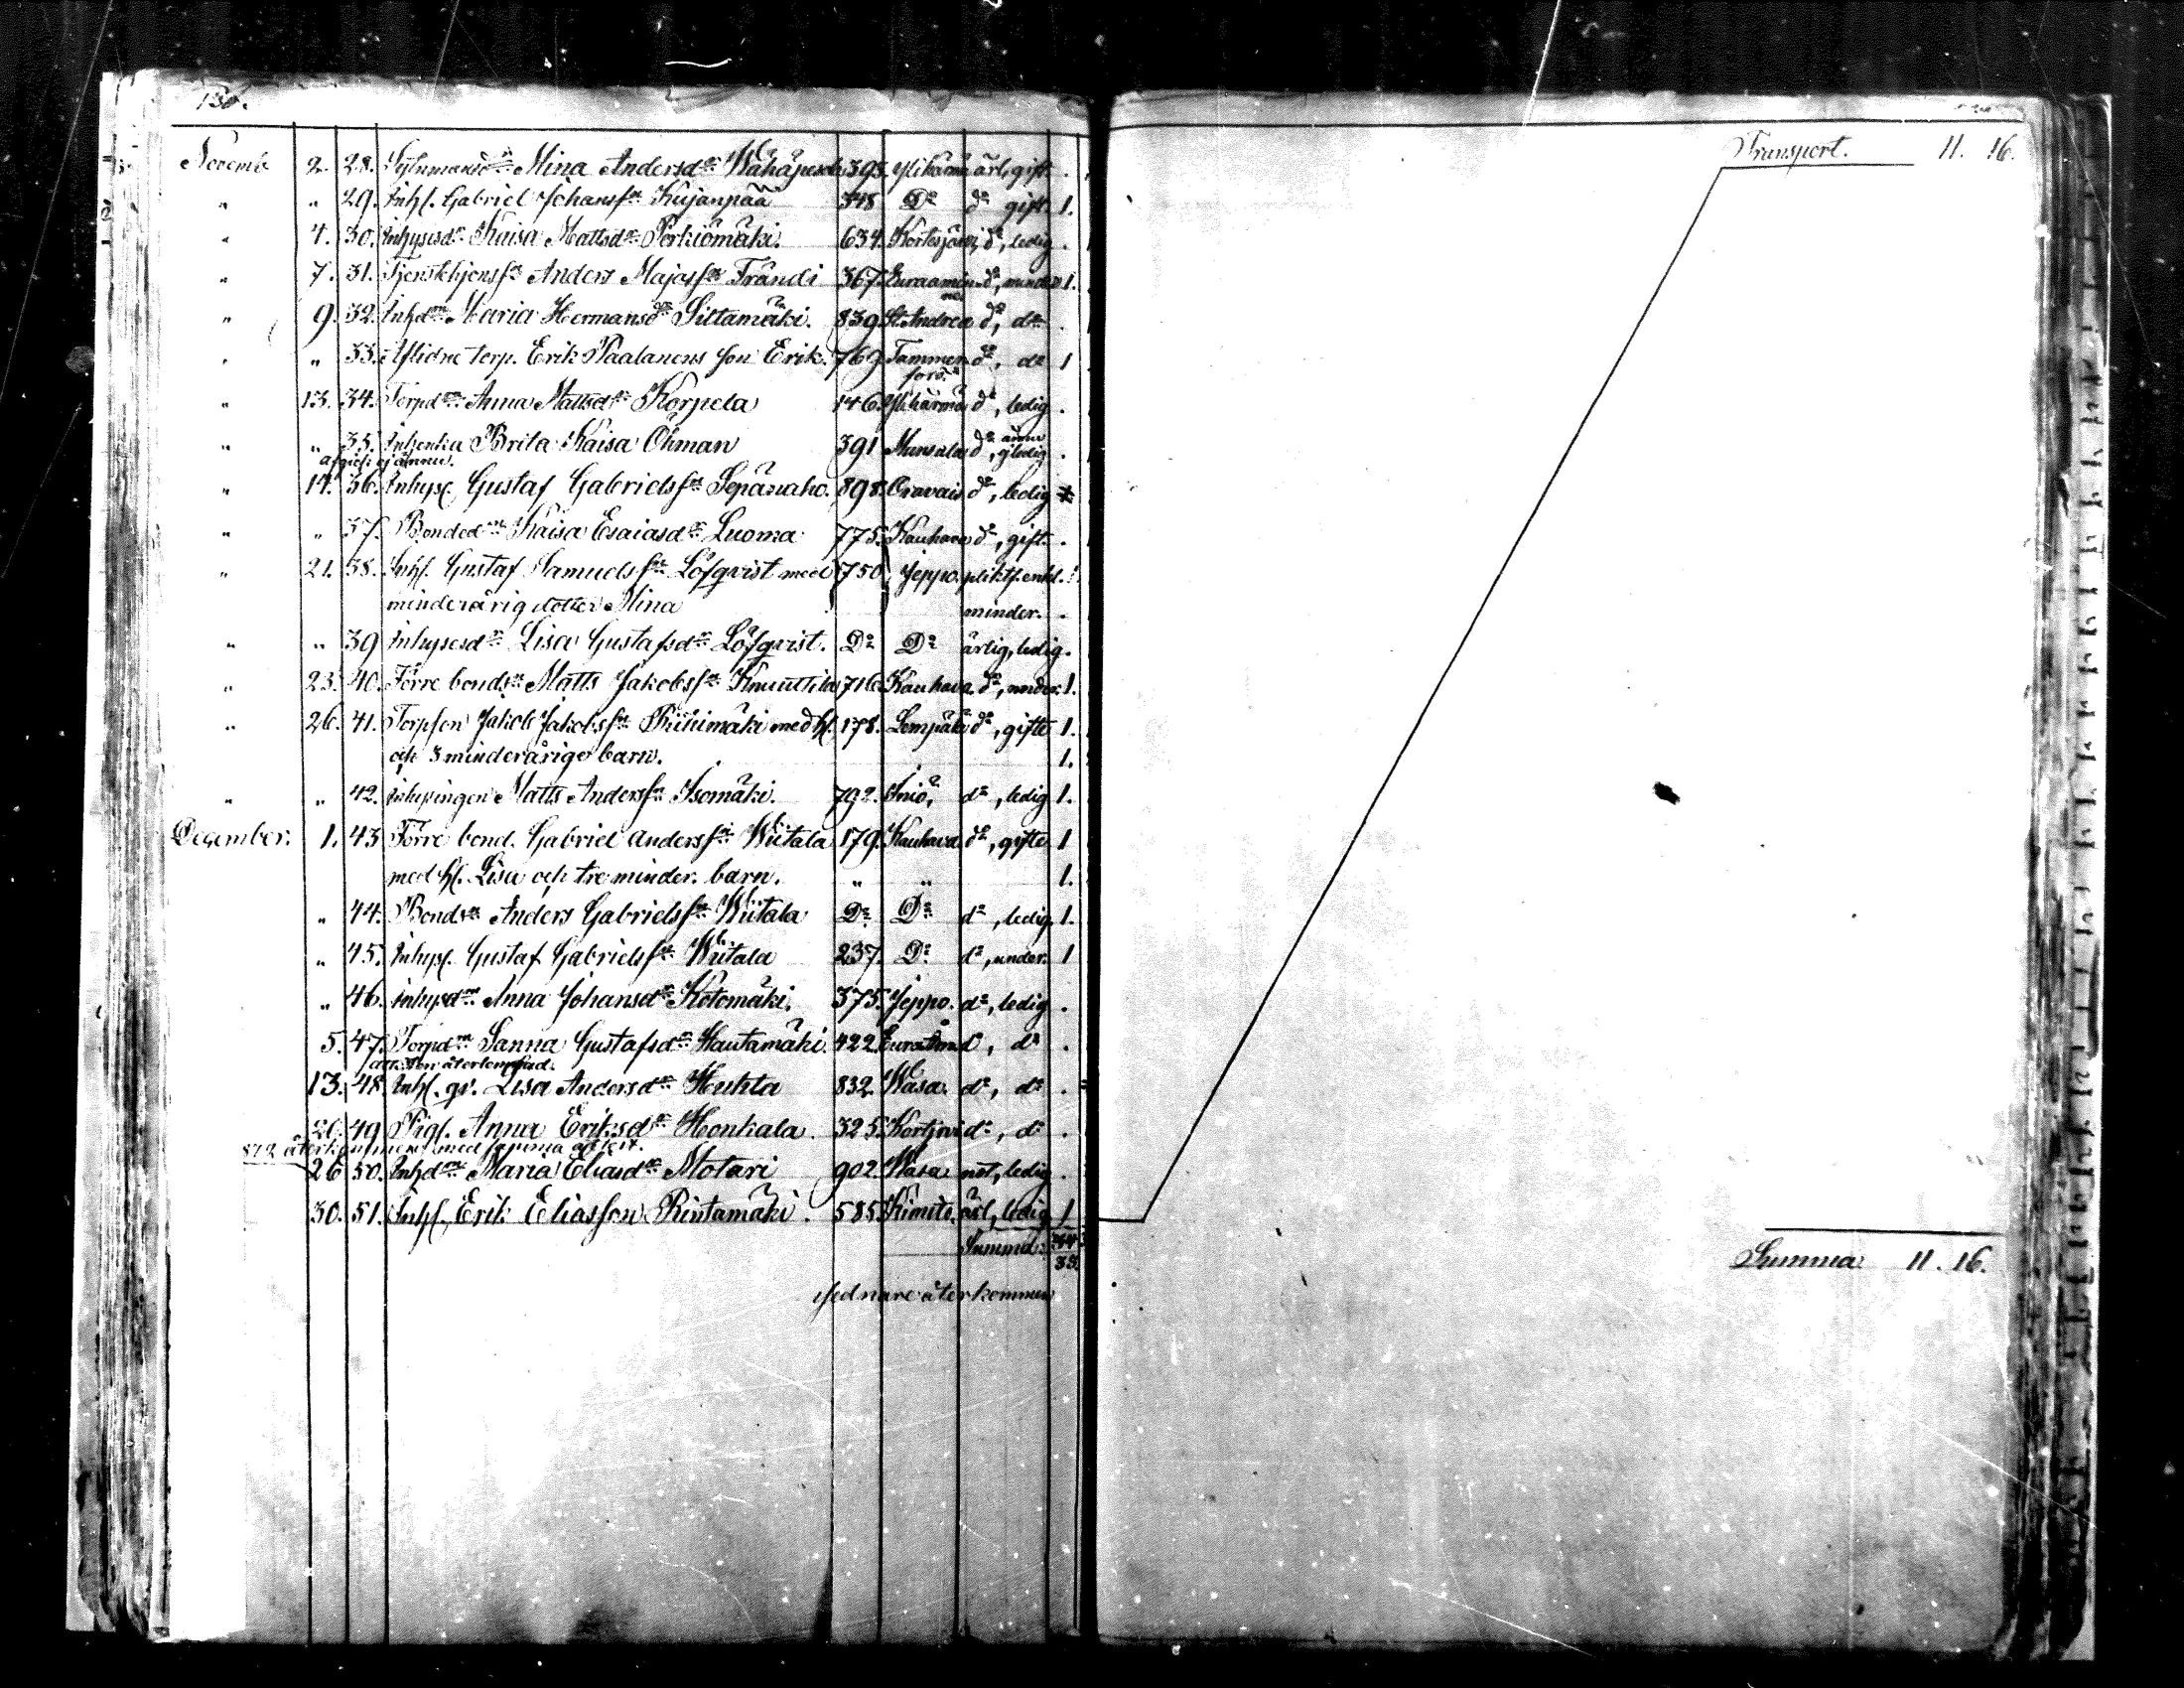 130.
Novemb. 2. 28. Mina Andersd:r 393. Ylihärmä ärl, gift. .
" " 29. Inhs. Gabriel Johanss:n Kujanpää 348 D:o d:o gift. 1.
" 4. 30. Inhysesd:r Kaisa Mattsd:r Porkiömäki. 634. Kortesjärvi, d:o, ledig .
" 7. 31. Anders Majass:n Trändi 367. Euraåminne d:o, minder 1.
" 9. 32. Inhd:rn Maria Hermansd:r Siltamäki. 839. St. Andrea d:o, d:o .
" " 33. Aflidne torp. Erik Paalanens son Erik. 769. Tammerfors. d:o, d:o 1
" 13. 34. Torpd:rn Anna Mattsd:r Korpela 146. Ylihärmä d:o, ledig .
" " 35. Inhenka Brita Kaisa Öhman 391 Munsala d:o, ledig .
afgick ej ännu.
" 17. 36. Inhys. Gustaf Gabrielss:n Sepänaho. 898. Oravais d:o, ledig
" " 37. Bonded:rn Kaisa Esaiasd:r Luoma 775. Kauhava d:o, gift. .
" 21. 38. Inhs. Gustaf Samuelss:n Löfqvist med 750 Jeppo. enkl. 1.
minderårig dotter Mina minder. .
" " 39 Inhysesd:r Lisa Gustafsd:r Löfqvist. D:o D:o ärlig, ledig.
" 23. 40. Förre bonds:n Matts Jakobss:n Knuuttila 716. Kauhava d:o, 1.
" 26. 41. Torpson Jakob Jakobss:n Riihimäki med h. 178. Lempälä d:o, gifte 1.
och 3 minderåriga barn. 1.
" " 42. Inhysingen Matts Anderss:n Isomäki. 792. d:o, ledig 1.
December. 1. 43 Förre bond. Gabriel Anderss:n Wiitala 179. Kauhava d:o, gifte 1
med h. Lisa och tre minder. barn. " " 1.
" 44. Bonds:n Anders Gabrielss:n Wiitala D:o D:o d:o, ledig 1.
" 45. Inhys. Gustaf Gabrielss:n Wiitala 237. D:o d:o, under. 1
" 46. Inhysd:rn Anna Johansd:r Kotomäki. 375. Jeppo. d:o, ledig .
5. 47. Torpd:rn Sanna Gustafsd:r Hautamäki. 422. d:o, d:o .
återkommen.
13. 48. Inhs. Lisa Andersd:r Huhta 832 Wasa. d:o, d:o .
20. 49 Pigs. Anna Eriksd:r Honkala. 325. Kortjärvi d:o, d:o .
872 återkommen med samma attest.
26 50. Inhd:rn Maria Eliasd:r Motari 902. Wasa not, ledig .
30. 51. Inhs. Erik Eliasson Rintamäki. 585. Kimito. ärl, ledig 1
Summa:
33.
sednare återkommen
Transport. 11. 16.
Summa 11. 16.